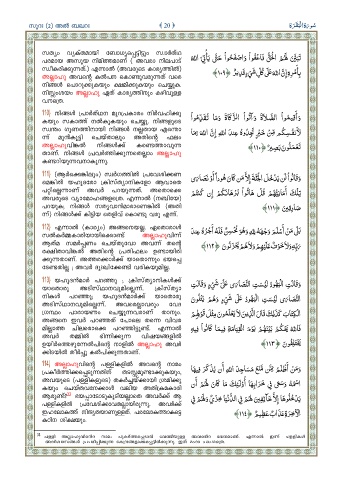 സൂറ (2) അൽ ബഖറ
﴾ 20 ﴿
سُورَةُ البَقَرَة
സത്യം വ്യക്തമായി ബോധ്യപ്പെട്ടിട്ടും സ്വാർത്ഥ
പരമായ അസൂയ നിമിത്തമാണ് ( അവരാ നിലപാട്
സ്വീകരിക്കുന്നത്.) എന്നാൽ (അവരുടെ കാര്യത്തിൽ)
അല്ലാഹു അവന്റെ കൽപന കൊണ്ടുവരുന്നത് വരെ
നിങ്ങൾ പൊറുക്കുകയും ക്ഷമിക്കുകയും ചെയ്യുക.
നിസ്സംശയം അല്ലാഹു ഏത് കാര്യത്തിനും കഴിവുള്ള
വനത്രെ.
تَبَيَّنَ لَهُمُ الْحَقُّ فَاعْفُوا وَاصْفَحُوا حَتَّى يَأْتِيَ اللَّهُ
بِأَمْرِهِ إِنَّ اللَّهَ عَلَى كُلِّ شَيْءٍ قَدِيرٌ ﴿١٠٩﴾
110) നിങ്ങൾ പ്രാർത്ഥന മുറപ്രകാരം നിർവഹിക്കു
കയും സകാത്ത് നൽകുകയും ചെയ്യുക. നിങ്ങളുടെ
സ്വന്തം ഗുണത്തിനായി നിങ്ങൾ നല്ലതായ എന്തൊ
ന്ന് മുൻകൂട്ടി ചെയ്താലും അതിന്റെ ഫലം
അല്ലാഹുവിങ്കൽ നിങ്ങൾക്ക് കണ്ടെത്താവുന്ന
താണ്. നിങ്ങൾ പ്രവർത്തിക്കുന്നതെല്ലാം അല്ലാഹു
കണ്ടറിയുന്നവനാകുന്നു.
وَأَقِيمُوا الصَّلَاةَ وَآتُوا الزَّكَاةَ وَمَا تُقَدِّمُوا
لِأَنفُسِكُم مِّنْ خَيْرٍ تَجِدُوهُ عِندَ اللَّهِ إِنَّ اللَّهَ بِمَا
تَعْمَلُونَ بَصِيرٌ ﴿١١٠﴾
111) (ആർക്കെങ്കിലും) സ്വർഗത്തിൽ പ്രവേശിക്കണ
മെങ്കിൽ യഹൂദരോ ക്രിസ്ത്യാനികളോ ആവാതെ
പറ്റില്ലെന്നാണ് അവർ പറയുന്നത്. അതൊക്കെ
അവരുടെ വ്യാമോഹങ്ങളത്രെ. എന്നാൽ (നബിയേ)
പറയുക; നിങ്ങൾ സത്യവാന്മാരാണെങ്കിൽ (അതി
ന്ന്) നിങ്ങൾക്ക് കിട്ടിയ തെളിവ് കൊണ്ടു വരൂ എന്ന്.
وَقَالُوا لَن يَدْخُلَ الْجَنَّةَ إِلَّا مَن كَانَ هُودًا أَوْ نَصَارَى
تِلْكَ أَمَانِيُّهُمْ قُلْ هَاتُوا بُرْهَانَكُمْ إِن كُنتُمْ
صَادِقِينَ ﴿١١١﴾
112) എന്നാൽ (കാര്യം) അങ്ങനെയല്ല. ഏതൊരാൾ
സൽകർമ്മകാരിയായിക്കൊണ്ട് അല്ലാഹുവിന്ന്
ആത്മ സമർപ്പണം ചെയ്തുവോ അവന്ന് തന്റെ
രക്ഷിതാവിങ്കൽ അതിന്റെ പ്രതിഫലം ഉണ്ടായിരി
ക്കുന്നതാണ്. അത്തരക്കാർക്ക് യാതൊന്നും ഭയപ്പെ
ടേണ്ടതില്ല ; അവർ ദുഃഖിക്കേണ്ടി വരികയുമില്ല.
بَلَى مَنْ أَسْلَمَ وَجْهَهُ لِلَّهِ وَهُوَ مُحْسِنٌ فَلَهُ أَجْرُهُ عِندَ
رَبِّهِ وَلَا خَوْفٌ عَلَيْهِمْ وَلَا هُمْ يَحْزَنُونَ ﴿١١٢﴾
113) യഹൂദന്മാർ പറഞ്ഞു ; ക്രിസ്ത്യാനികൾക്ക്
യാതൊരു അടിസ്ഥാനവുമില്ലെന്ന്. ക്രിസ്ത്യാ
നികൾ പറഞ്ഞു യഹൂദന്മാർക്ക് യാതൊരു
അടിസ്ഥാനവുമില്ലെന്ന്. അവരെല്ലാവരും വേദ
ഗ്രന്ഥം പാരായണം ചെയ്യുന്നവരാണ് താനും.
അങ്ങനെ ഇവർ പറഞ്ഞത് പോലെ തന്നെ വിവര
മില്ലാത്ത ചിലരൊക്കെ പറഞ്ഞിട്ടുണ്ട്. എന്നാൽ
അവർ തമ്മിൽ ഭിന്നിക്കുന്ന വിഷയങ്ങളിൽ
ഉയിർത്തെഴുന്നേൽപിന്റെ നാളിൽ അല്ലാഹു അവർ
ക്കിടയിൽ തീർപ്പു കൽപിക്കുന്നതാണ്.
وَقَالَتِ الْيَهُودُ لَيْسَتِ النَّصَارَى عَلَى شَيْءٍ وَقَالَتِ
النَّصَارَى لَيْسَتِ الْيَهُودُ عَلَى شَيْءٍ وَهُمْ يَتْلُونَ
الْكِتَابَ كَذَلِكَ قَالَ الَّذِينَ لَا يَعْلَمُونَ مِثْلَ قَوْلِهِمْ
فَاللَّهُ يَحْكُمُ بَيْنَهُمْ يَوْمَ الْقِيَامَةِ فِيمَا كَانُوا فِيهِ
يَخْتَلِفُونَ ﴿١١٣﴾
114) അല്ലാഹുവിന്റെ പള്ളികളിൽ അവന്റെ നാമം
പ്രകീർത്തിക്കപ്പെടുന്നതിന് തടസ്സമുണ്ടാക്കുകയും,
അവയുടെ (പള്ളികളുടെ) തകർച്ചയ്ക്കായി ശ്രമിക്കു
കയും ചെയ്തവനേക്കാൾ വലിയ അതിക്രമകാരി
ആരുണ്ട്? ഭയപ്പാടോടുകൂടിയല്ലാതെ അവർക്ക് ആ
പള്ളികളിൽ പ്രവേശിക്കാവതല്ലായിരുന്നു. അവർക്ക്
ഇഹലോകത്ത് നിന്ദ്യതയാണുള്ളത്. പരലോകത്താകട്ടെ
കഠിന ശിക്ഷയും.
وَمَنْ أَظْلَمُ مِمَّن مَّنَعَ مَسَاجِدَ اللَّهِ أَن يُذْكَرَ فِيهَا
اسْمُهُ وَسَعَى فِي خَرَابِهَا أُولَئِكَ مَا كَانَ لَهُمْ أَن
يَدْخُلُوهَا إِلَّا خَائِفِينَ لَهُمْ فِي الدُّنْيَا خِزْيٌ وَلَهُمْ فِي
الْآخِرَةِ عَذَابٌ عَظِيمٌ ﴿١١٤﴾